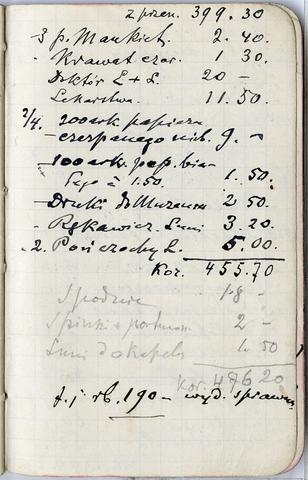 z przen. 399.30
3 p. Mankiet. 2.40.
- Krawat czar. 1 30.
Doktór L + L. 20 -
Lekarstwa. 11.50.
2/4. 200 ark. papieru
- czerpanego nieb. 9. -
- 100 ark. pap. bia-
łego à 1.50. 1.50.
- Druki Dr Muzeum 2 50.
- Rękawicz. Luni 3.20.
- 2. Pończochy L. 5.00.
Kor. 455.70
Spodnie 18 -
Spinki + portmon. 2 -
Luni do kapel. 1.50
Kor. 476 20
t. j. rb. 190 - wyd. spraw